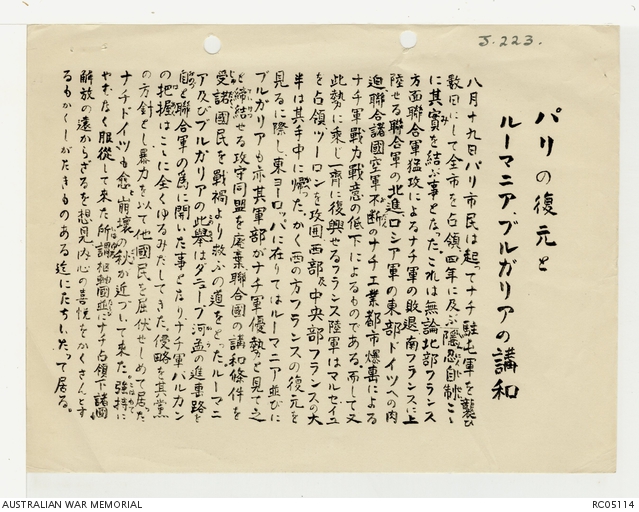 J.223.
パリの復元と
ルーマニア、ブルガリアの講和
八月十九日パリ市民は起ってナチ駐屯軍を襲ひ
数日にして全市を占領、四年に及ぶ隠忍自制こゝ
に其實を結ぶ事となった。これは無論北部フランス
方面聯合軍猛攻によるナチ軍の敗退、南フランスに上
陸せる聯合軍の北進、ロシア軍の東部ドイツへの肉
迫、聯合諸國空軍不断のナチ工業都市爆撃による
ナチ軍戦力戦意の低下によるものである。而して又
此勢に乗じ一齊に復興せるフランス陸軍はマルセイユ
を占領ツーロンを攻囲西部及中央部フランスの大
半は其手中に帰った。かく西の方フランスの復元を
見るに際し東ヨーロッパに在りてはルーマニア並びに
ブルガリアも亦其軍部がナチ軍優勢と見て之
と締結せる攻守同盟を廃棄聯合國の講和條件を
受諾國民を戦禍より救ふの道をとった。ルーマニ
ア及びブルガリアの此挙はダニューブ河孟の進専路を
自と聯合軍の為に開いた事となりナチ軍バルカン
の把握はこゝに全くゆるみだしてきた。侵略を其業
の方針とし暴力を以て他國民を屈伏せしめて居った
ナチドイツも愈々崩壊の秋が近づいて来た。強持に
やむなく服従して来た所謂枢軸國並にナチ占領下諸國
解放の遠からざるを想見内心の喜悦をかくさんとす
るもかくしがたきものある迄にたちいたって居る。
AUSTRALIAN WAR MEMORIAL
RC05114